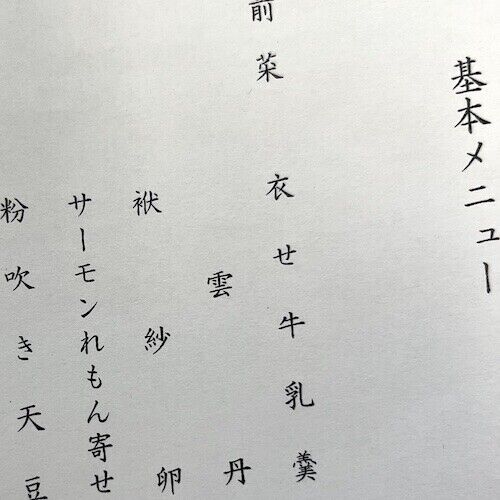 基本メニュー
前菜
衣せ牛乳羹
雲丹
袱紗卵
サーモンれもん寄せ
粉吹き天豆